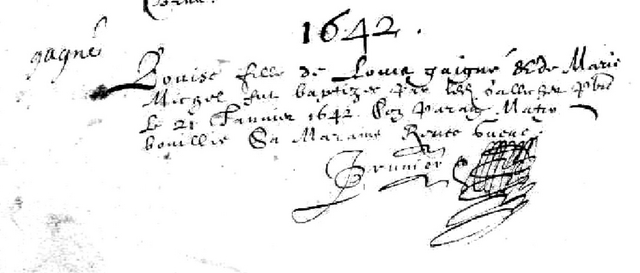 1642.
gagné
Louise fille de Louis gaigné & de Marie
Michel fut baptizée par
le 21 Janvier 1642. Son parain
bouillie Sa Maraine Renée
Brunier